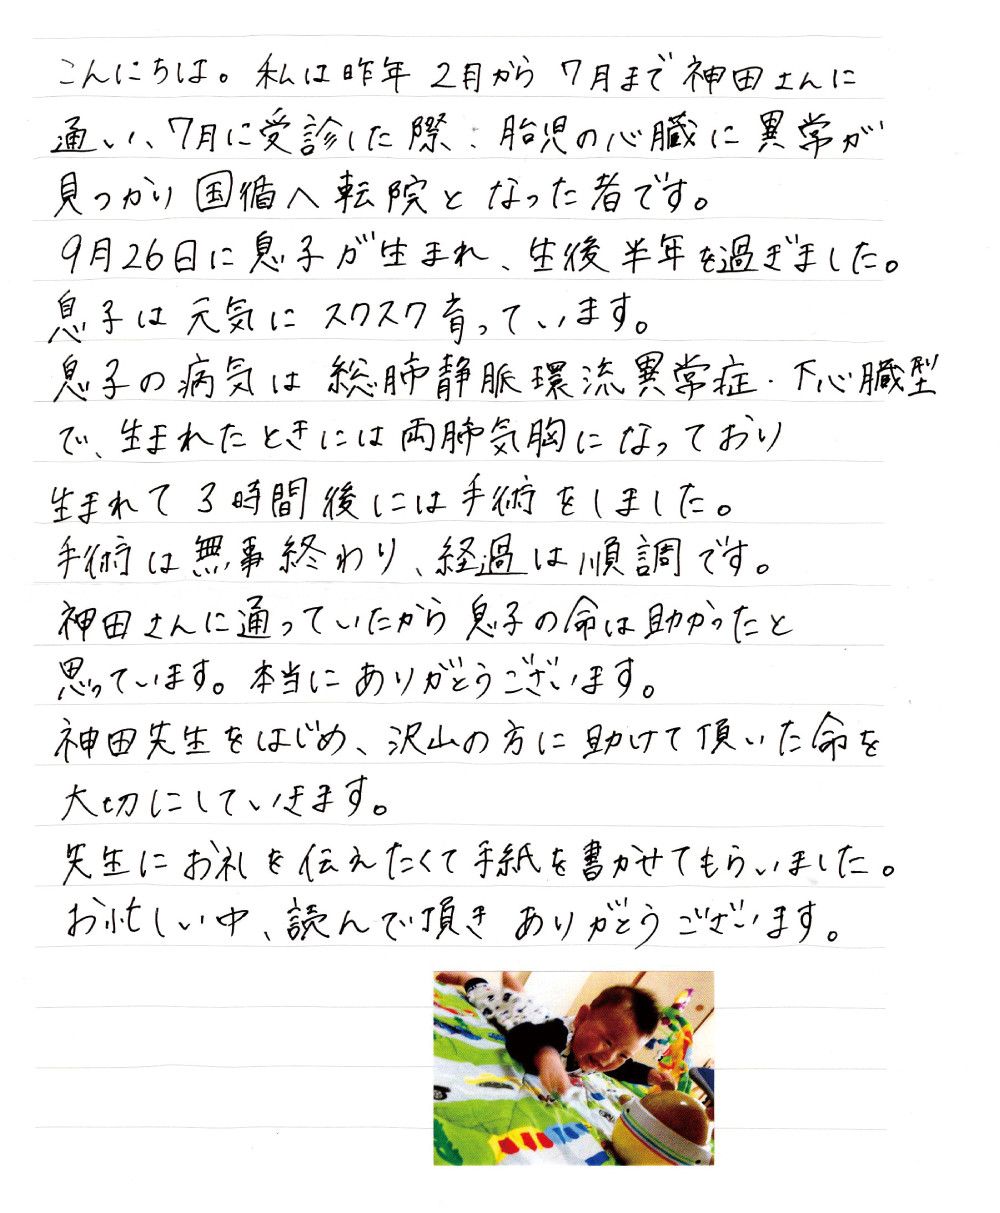 こんにちは。私は昨年2月から7月まで神田さんに
通い、7月に受診した際、胎児の心臓に異常が
見つかり国循へ転院となった者です。
9月26日に息子が生まれ、生後半年を過ぎました。
息子は元気にスクスク育っています。
息子の病気は総肺静脈環流異常症・下心臓型
で、生まれたときには両肺気胸になっており
生まれて3時間後には手術をしました。
手術は無事終わり、経過は順調です。
神田さんに通っていたから息子の命は助かったと
思っています。本当にありがとうございます。
神田先生をはじめ、沢山の方に助けて頂いた命を
大切にしていきます。
先生にお礼を伝えたくて手紙を書かせてもらいました。
お忙しい中、読んで頂きありがとうございます。